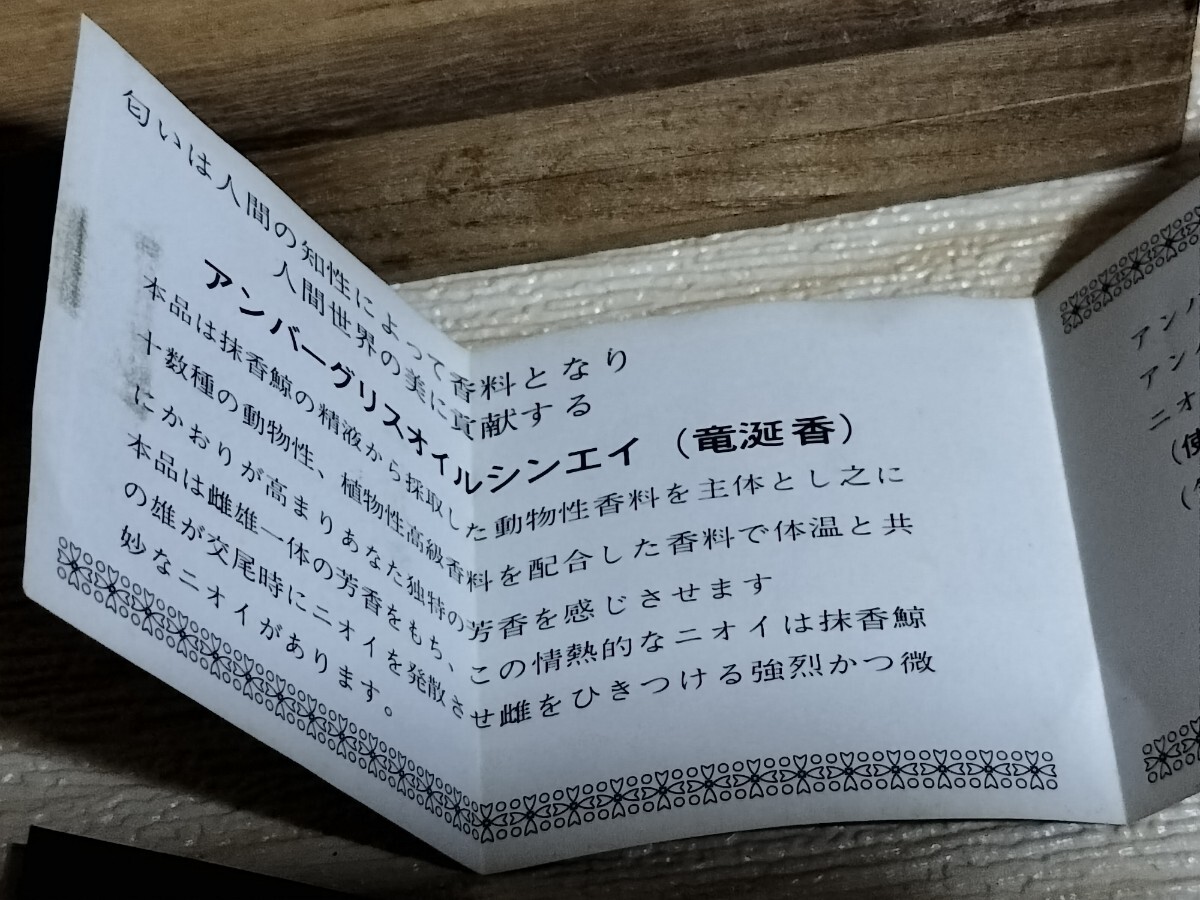 匂いは人間の知性によって香料となり
人間世界の美に貢献する
アンバーグリスオイルシンエイ（竜涎香）
本品は抹香鯨の精液から採取した動物性香料を主体とし之に
十数種の動物性、植物性高級香料を配合した香料で体温と共
にかおりが高まりあなた独特の芳香を感じさせます
本品は雌雄一体の芳香をもち、この情熱的なニオイは抹香鯨
の雄が交尾時にニオイを発散させ雌をひきつける強烈かつ微
妙なニオイがあります。
アンバ
アン
ニオ
（使
（